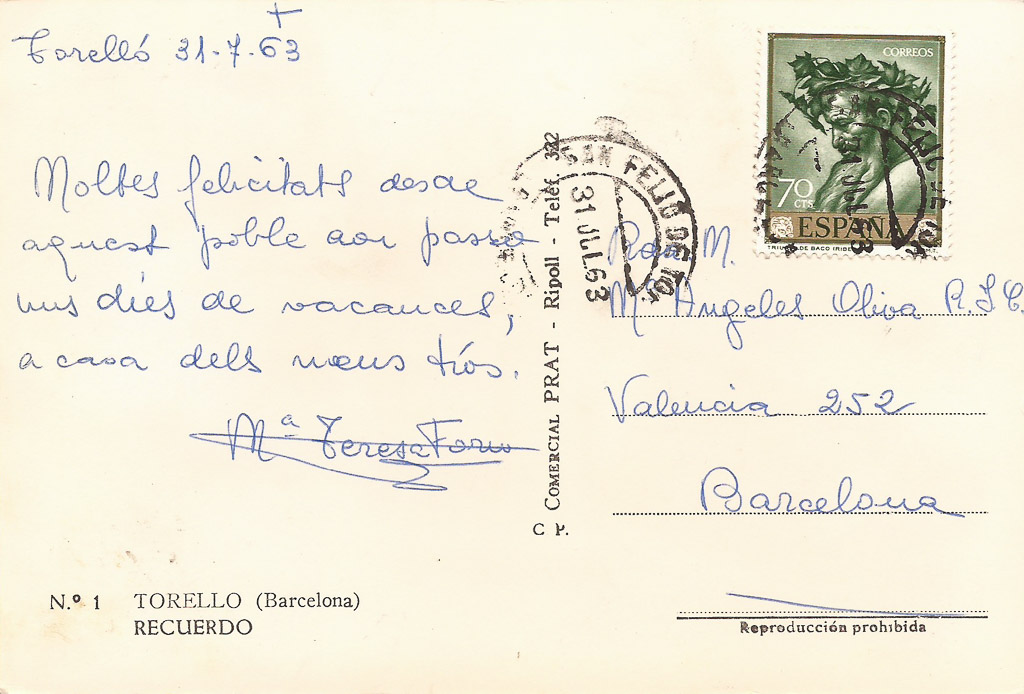 Torelló 31-7-63
Moltes felicitats desde
aquest poble aon passo
uns dies de vacances,
a casa dels meus tíos.
Mª Teresa
COMERCIAL PRAT - Ripoll - Teléf. 322
C P.
CORREOS
70
CTS
ESPAÑA
SAN FELIU DE TOR
31 JUL.63
M.
Mª Angeles Oliva R.S.C.
Valencia 252
Barcelona
N.º 1 TORELLO (Barcelona)
RECUERDO
Reproducción prohibida